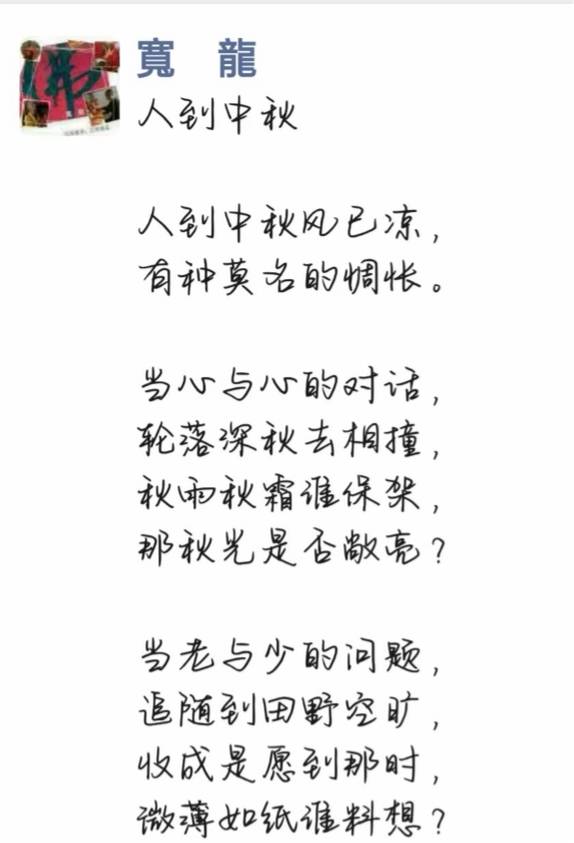 寬 龍
人到中秋
人到中秋风已凉，
有种莫名的惆怅。
当心与心的对话，
轮落深秋去相撞，
秋雨秋霜谁保架，
那秋光是否敞亮？
当老与少的问题，
追随到田野空旷，
收成是愿到那时，
微薄如纸谁料想？